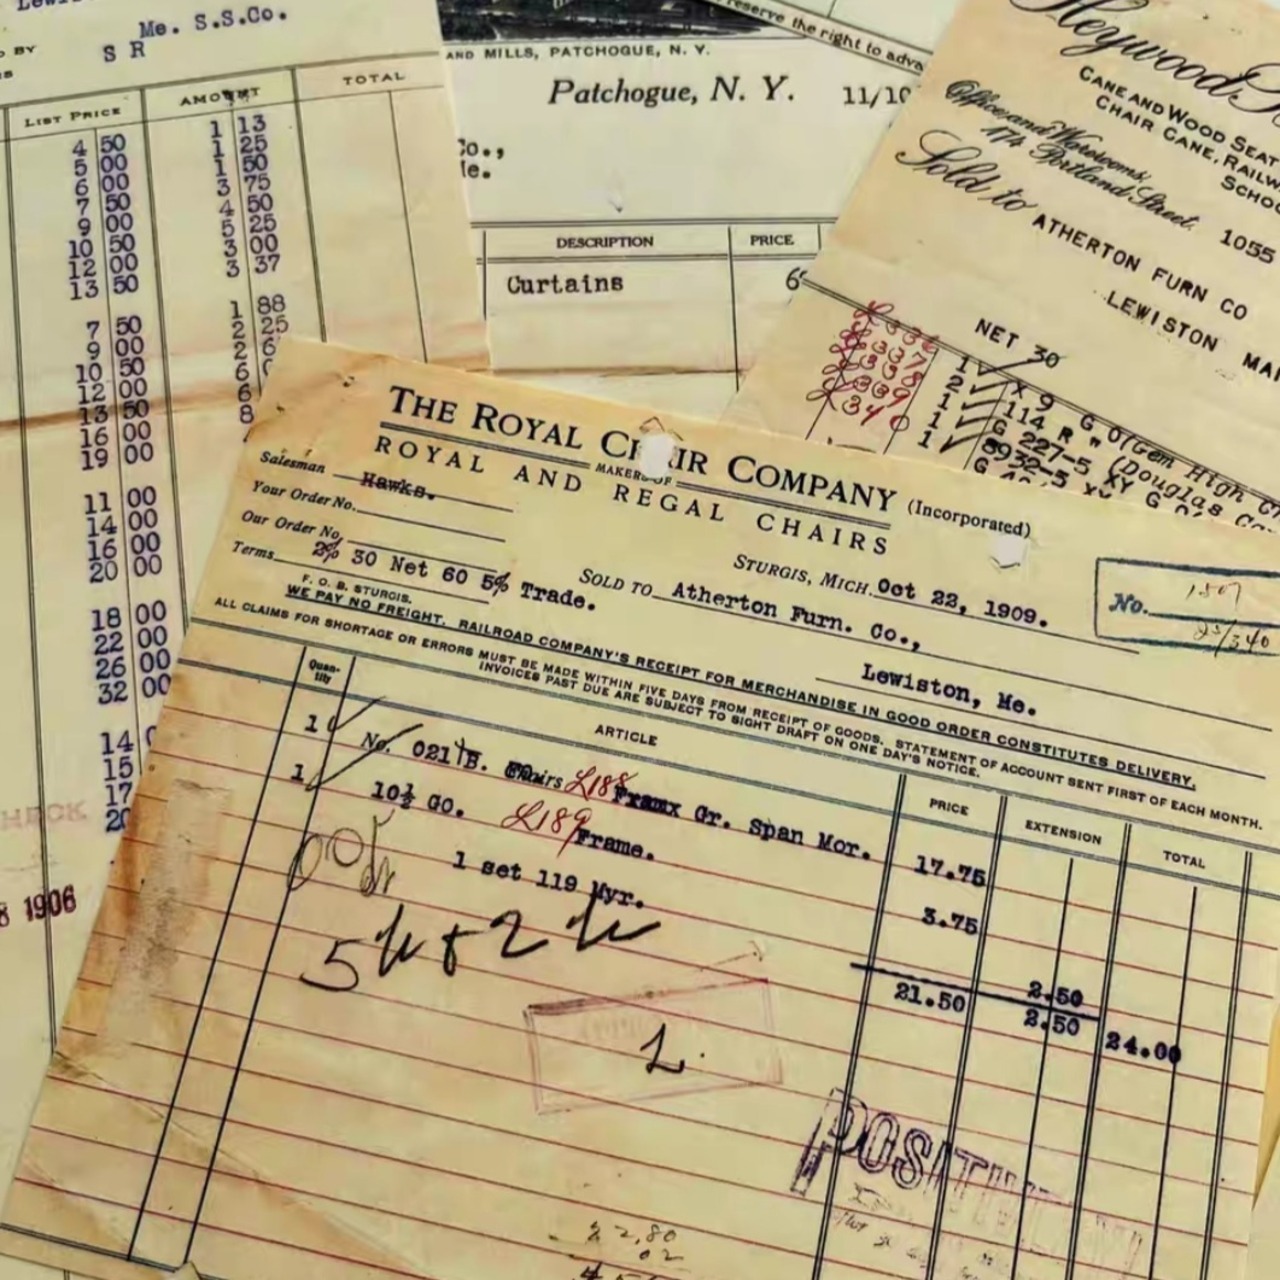 Me. S.S.Co.
S R
LIST PRICE AMOUNT TOTAL
4 50 1 13
5 00 1 25
6 00 1 50
7 50 3 75
9 00 4 50
10 50 5 25
12 00 3 00
13 50 3 37
7 50 1 88
9 00 2 25
10 50 2 6
12 00 6
13 50 6
16 00 8
19 00
11 00
14 00
16 00
20 00
18 00
22 00
26 00
32 00
14
15
17
20
1906
AND MILLS, PATCHOGUE, N. Y.
Patchogue, N. Y. 11/10
Co.,
DESCRIPTION PRICE
Curtains 6
reserve the right to adva
Heywood
CANE AND WOOD SEAT
CHAIR CANE, RAILW
SCHOO
Office and Warerooms,
174 Portland Street.
1055
Sold to ATHERTON FURN CO
LEWISTON MAI
NET 30
L336
L337
L338
L339
L340
1 X 9 G O(Gem High C
2 114 R "
1 G 227-5 (Douglas
1 8932-5 XY G
1 G
THE ROYAL CHAIR COMPANY (Incorporated)
MAKERS OF
ROYAL AND REGAL CHAIRS
Salesman Hawks.
Your Order No.
Our Order No.
Terms 2% 30 Net 60 5% Trade.
F. O. B. STURGIS.
STURGIS, MICH. Oct 22, 1909.
SOLD TO Atherton Furn. Co.,
Lewiston, Me.
No. 1507
25/340
WE PAY NO FREIGHT. RAILROAD COMPANY'S RECEIPT FOR MERCHANDISE IN GOOD ORDER CONSTITUTES DELIVERY.
ALL CLAIMS FOR SHORTAGE OR ERRORS MUST BE MADE WITHIN FIVE DAYS FROM RECEIPT OF GOODS. STATEMENT OF ACCOUNT SENT FIRST OF EACH MONTH.
INVOICES PAST DUE ARE SUBJECT TO SIGHT DRAFT ON ONE DAY'S NOTICE.
Quantity ARTICLE PRICE EXTENSION TOTAL
1 No. 021 B. Chairs L188 Gr. Span Mor. 17.75
1 10½ GO. L189 Frame. 3.75
1 set 119 Myr. 2.50
21.50 2.50 24.00
1.
POSITIV
2,80
02